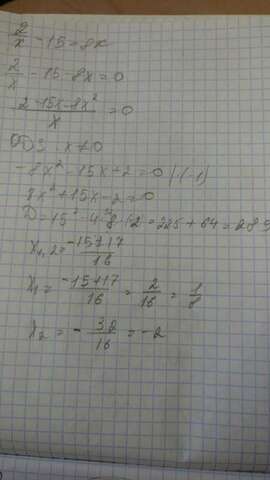 2/x - 15 = 8x
2/x - 15 - 8x = 0
(2 - 15x - 8x²)/x = 0
ОДЗ: x ≠ 0
-8x² - 15x + 2 = 0 | · (-1)
8x² + 15x - 2 = 0
D = 15² - 4 · 8 · (-2) = 225 + 64 = 289
x₁,₂ = (-15 ± 17)/16
x₁ = (-15 + 17)/16 = 2/16 = 1/8
x₂ = - 32/16 = -2